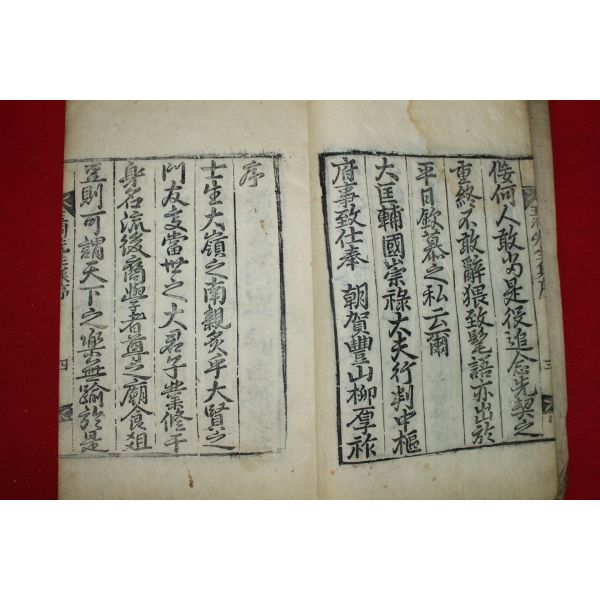 侫何人敢當是役追念先契之
重終不敢辭猥致蔓語亦出於
平日欽慕之私云爾
大匡輔國崇祿大夫行判中樞
府事致仕奉 朝賀豐山柳厚祚
序
士生大嶺之南親炙乎大賢之
門友交當世之大君子業修于
身名流後裔與享者尊之廟食俎
豆則可謂天下之樂無踰於是
四